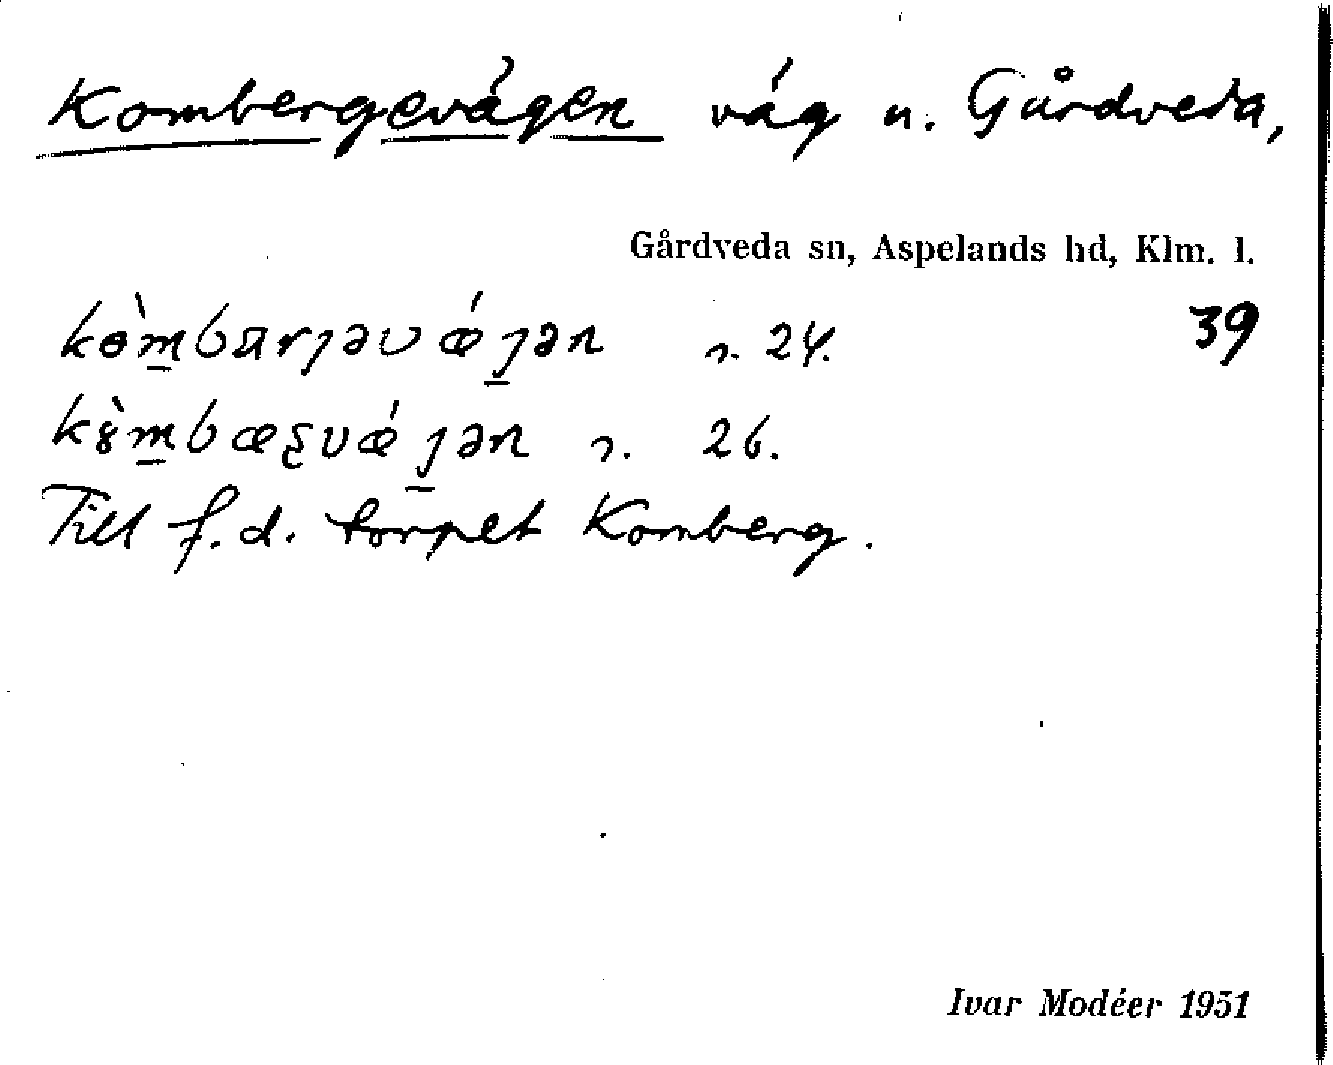 Kombergevägen väg u. Gårdveda,
Gårdveda sn, Aspelands hd, Klm. l.
kɵ̀m̲barɟəvǽɟ̲ən s. 24. 39
k8̀m̲bæʂvǽɟ̲ən s. 26.
Till f.d. torpet Komberg.
Ivar Modéer 1951